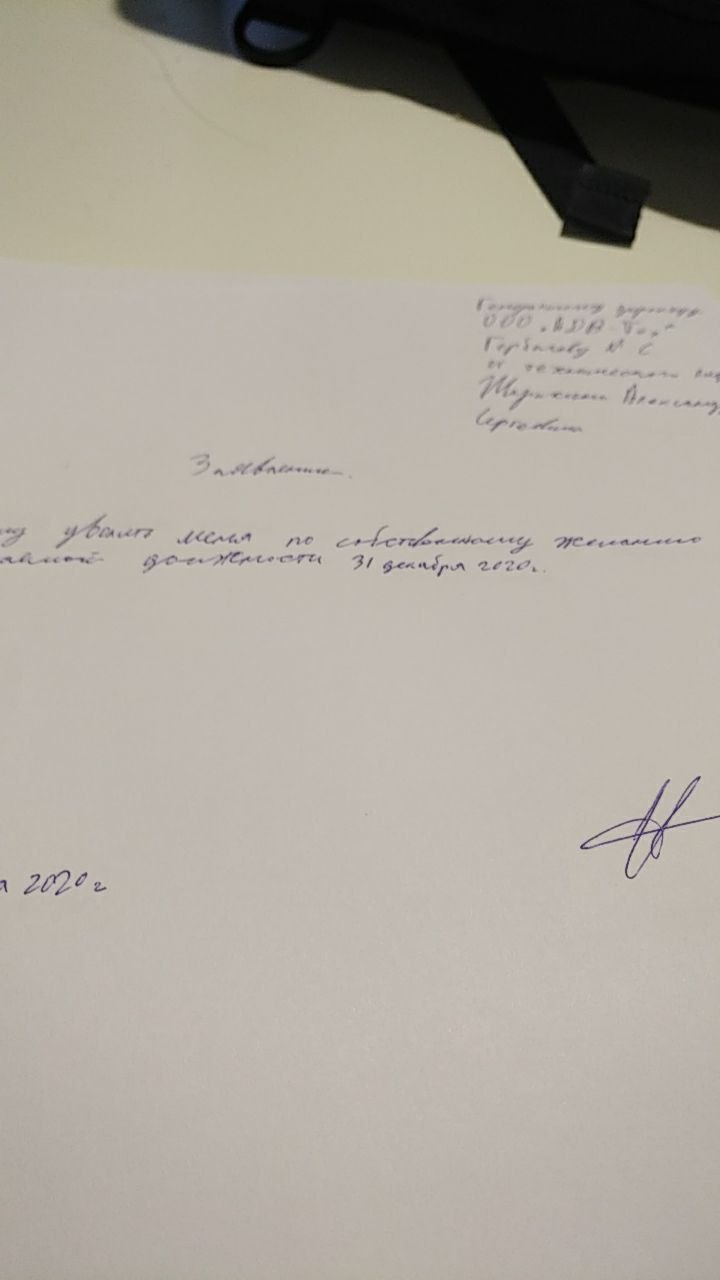 Генеральному директору
ООО
Горбачеву
от технического
Александ
Сергеевича
Заявление.
уволить меня по собственному желанию
должности 31 декабря 2020г.
а 2020 г